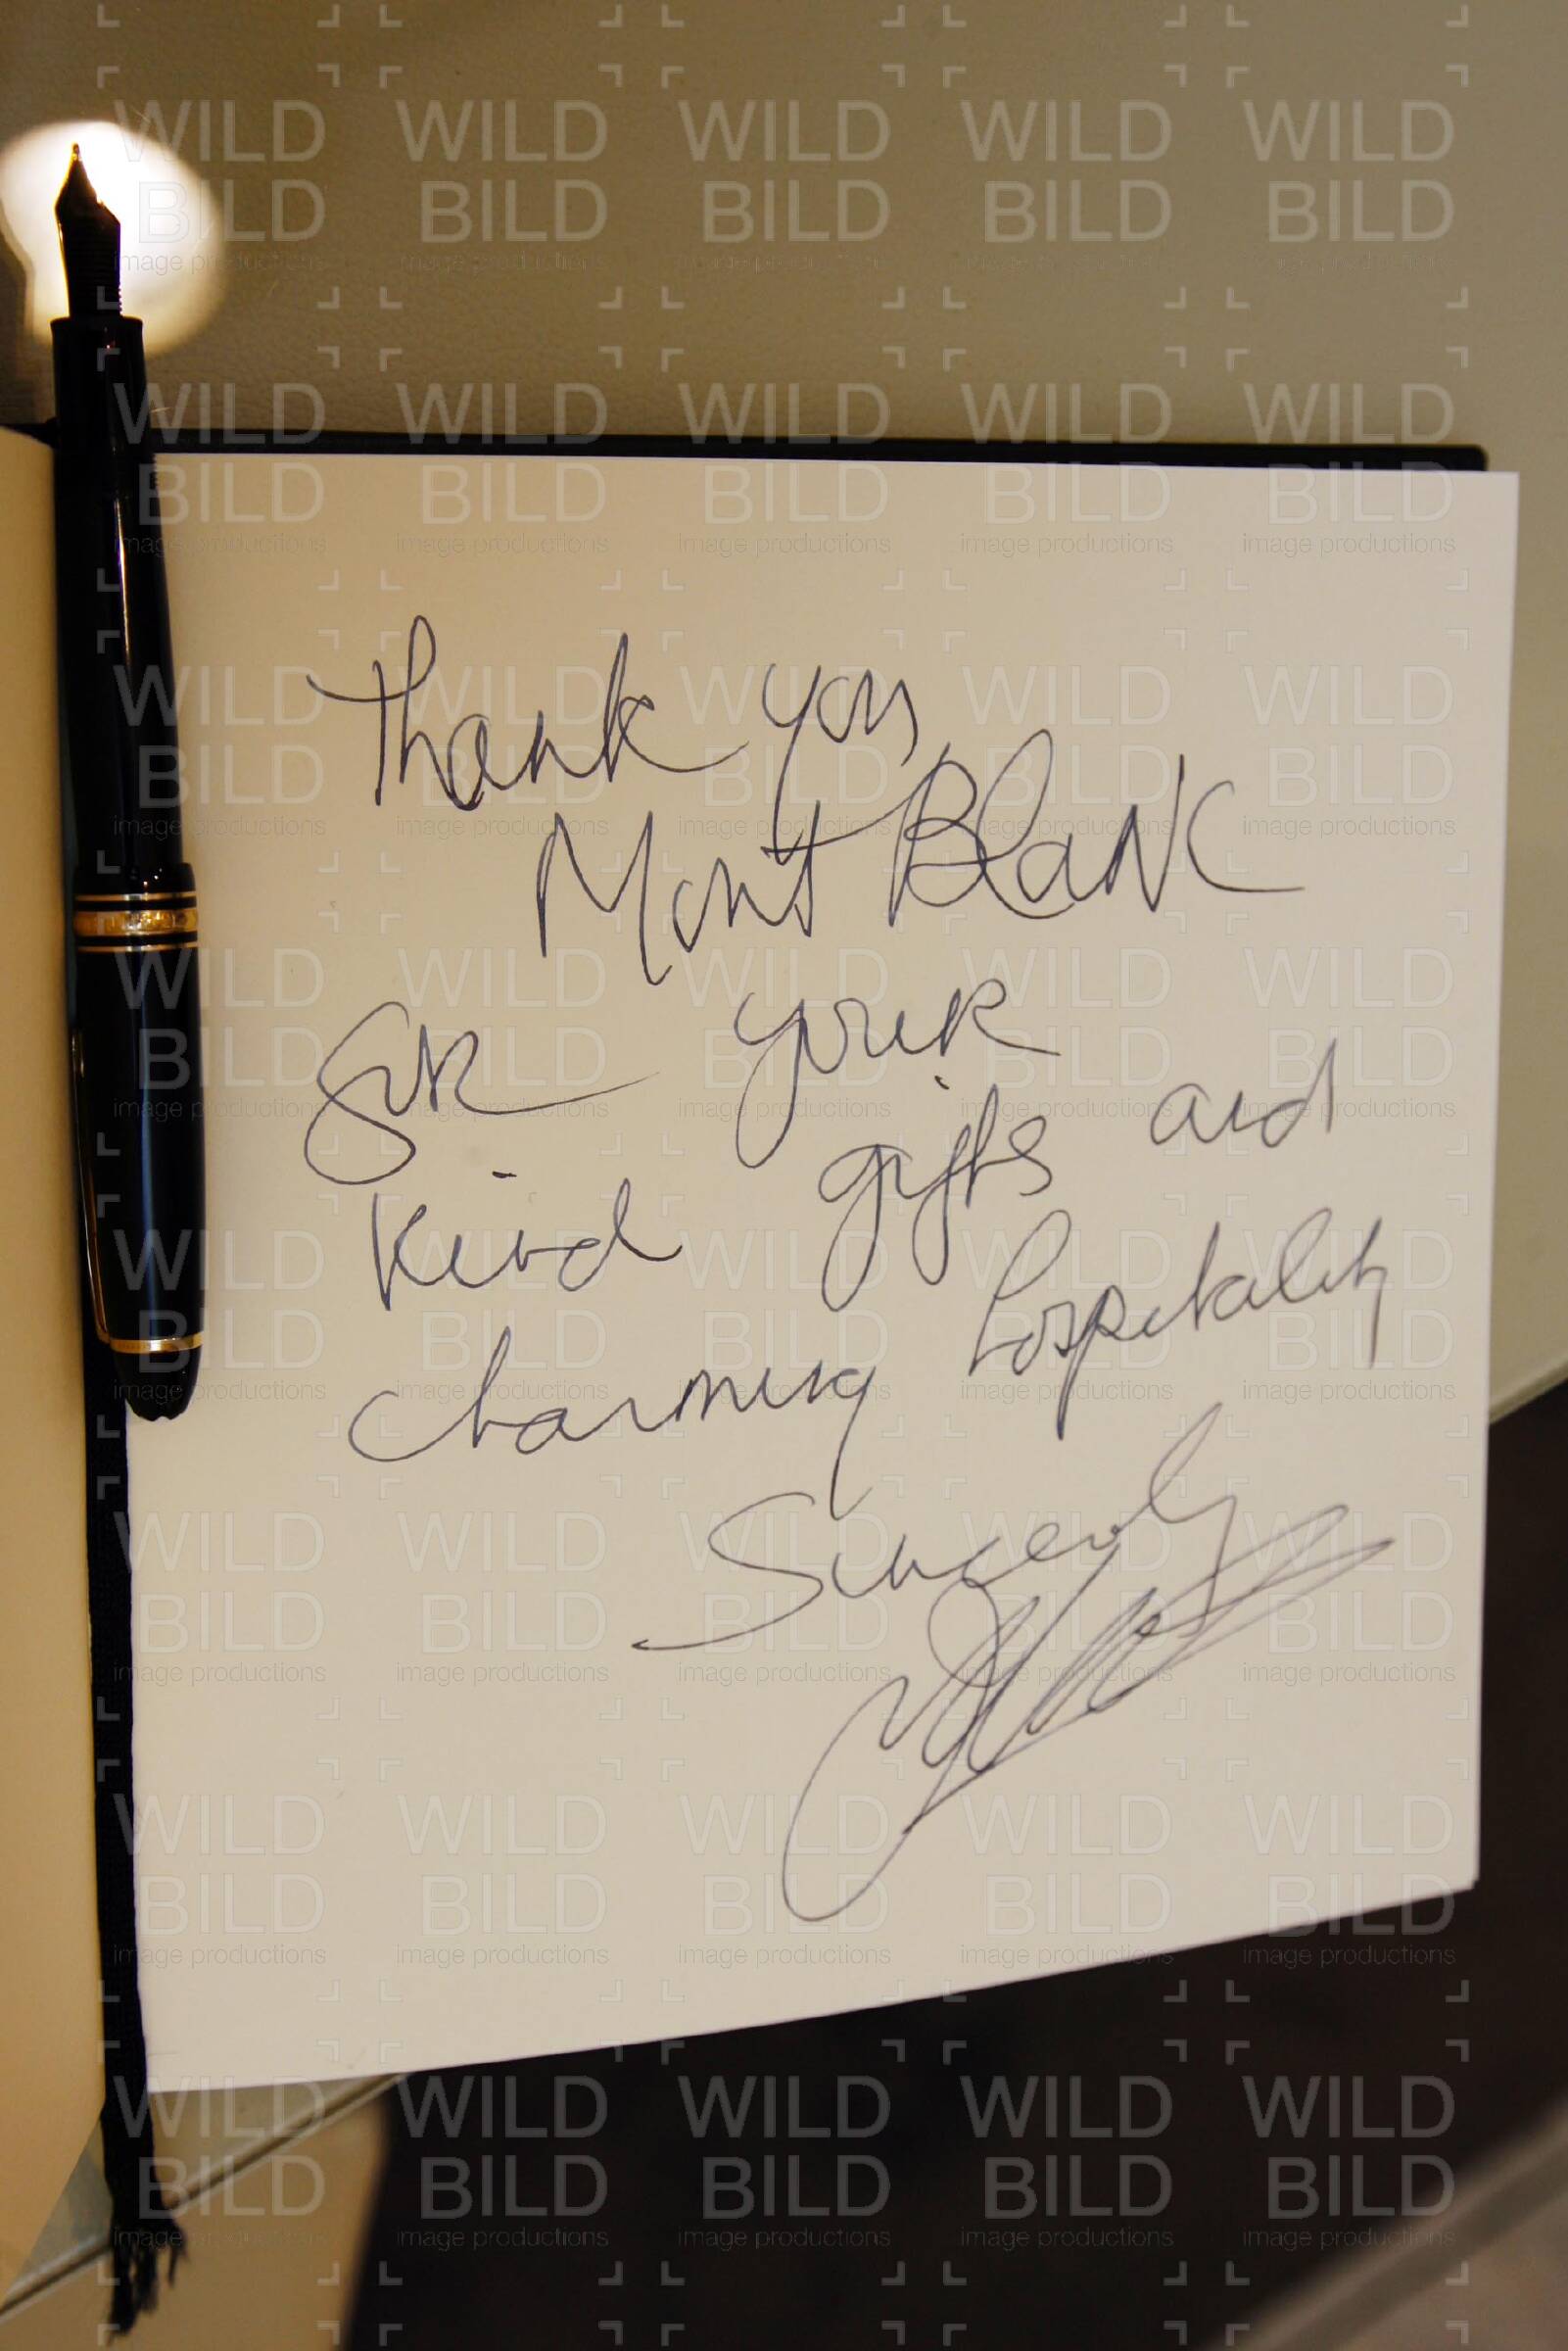 Thank you
Mont Blanc
for your
kind gifts and
charming hospitality
Sincerely
WILD
BILD
image productions